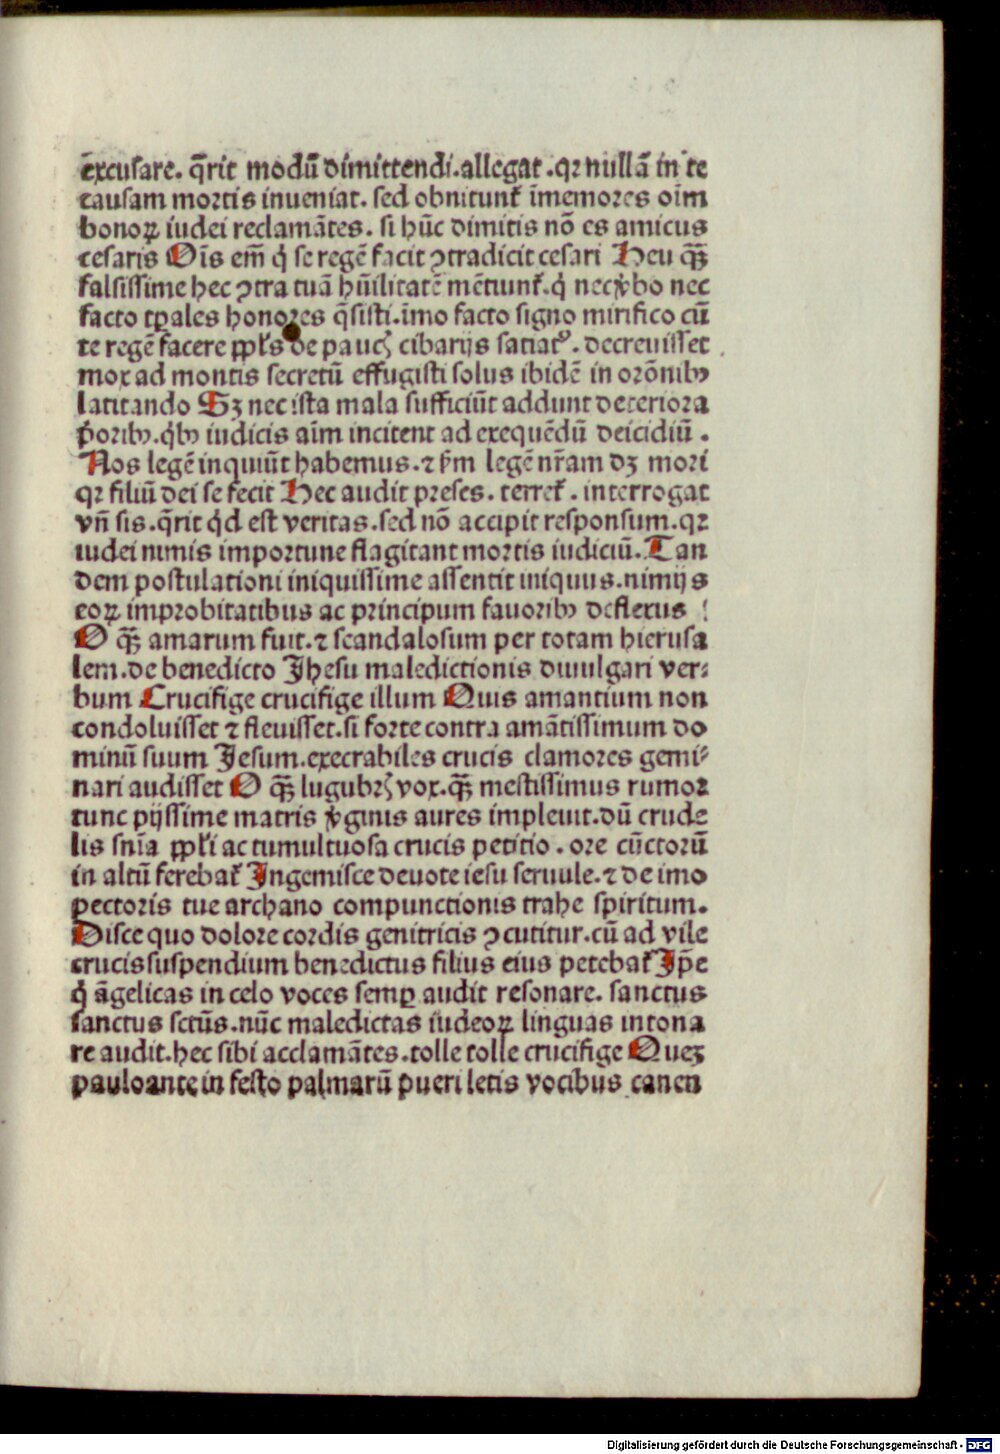 excusare. q̄rit modū dimittendi.allegat.qꝛ nullā in te
causam mortis inueniat. sed obnitunt᷑ īmemores oīm
bonoꝝ iudei reclamātes. si hūc dimitis nō es amicus
cesaris Oīs em̄ q̇ se regē facit ꝯtradicit cesari Heu q̄ꝫ
falsissime hec ꝯtra tuā hūilitatē mētiunt᷑.q̇ nec v̓bo nec
facto tꝑales honores q̄sisti.īmo facto signo mirifico cū
te regē facere ppl̓s de paucꝭ cibarijs satiatꝰ. decreuisset
mox ad montis secretū effugisti solus ibidē in orōnibꝰ
latitando Sꝫ nec ista mala sufficiūt addunt deteriora
p̓oribꝰ.q̇bꝰ iudicis aīm incitent ad exequēdū deicidiū.
Nos legē inquiūt habemus.⁊ ẜm legē nr̄am dꝫ mori
qꝛ filiū dei se fecit Hec audit preses. terret᷑. interrogat
vn̄ sis.q̄rit q̇d est veritas.sed nō accipit responsum.qꝛ
iudei nimis importune flagitant mortis iudiciū. Tan
dem postulationi iniquissime assentit iniquus.nimijs
eoꝝ improbitatibus ac principum fauoribꝰ deflexus
O q̄ꝫ amarum fuit.⁊ scandalosum per totam hierusa
lem.de benedicto Jhesu maledictionis diuulgari ver⸗
bum Crucifige crucifige illum Quis amantium non
condoluisset ⁊ fleuisset.si forte contra amātissimum do
minū suum Jesum.execrabiles crucis clamores gemi⸗
nari audisset O q̄ꝫ lugubrꝭ vox.q̄ꝫ mestissimus rumor
tunc pijssime matris v̓ginis aures impleuit.dū crude
lis sn̄ia ppl̓i ac tumultuosa crucis petitio. ore cūctorū
in altū ferebat᷑ Ingemisce deuote iesu seruule.⁊ de imo
pectoris tue archano compunctionis trahe spiritum.
Disce quo dolore cordis genitricis ꝯcutitur.cū ad vile
crucis suspendium benedictus filius eius petebat᷑ Ip̄e
q̇ āgelicas in celo voces semꝑ audit resonare. sanctus
sanctus sctūs.nūc maledictas iudeoꝝ linguas intona
re audit.hec sibi acclamātes.tolle tolle crucifige Quez
pauloante in festo palmarū pueri letis vocibus canen
Digitalisierung gefördert durch die Deutsche Forschungsgemeinschaft - DFG